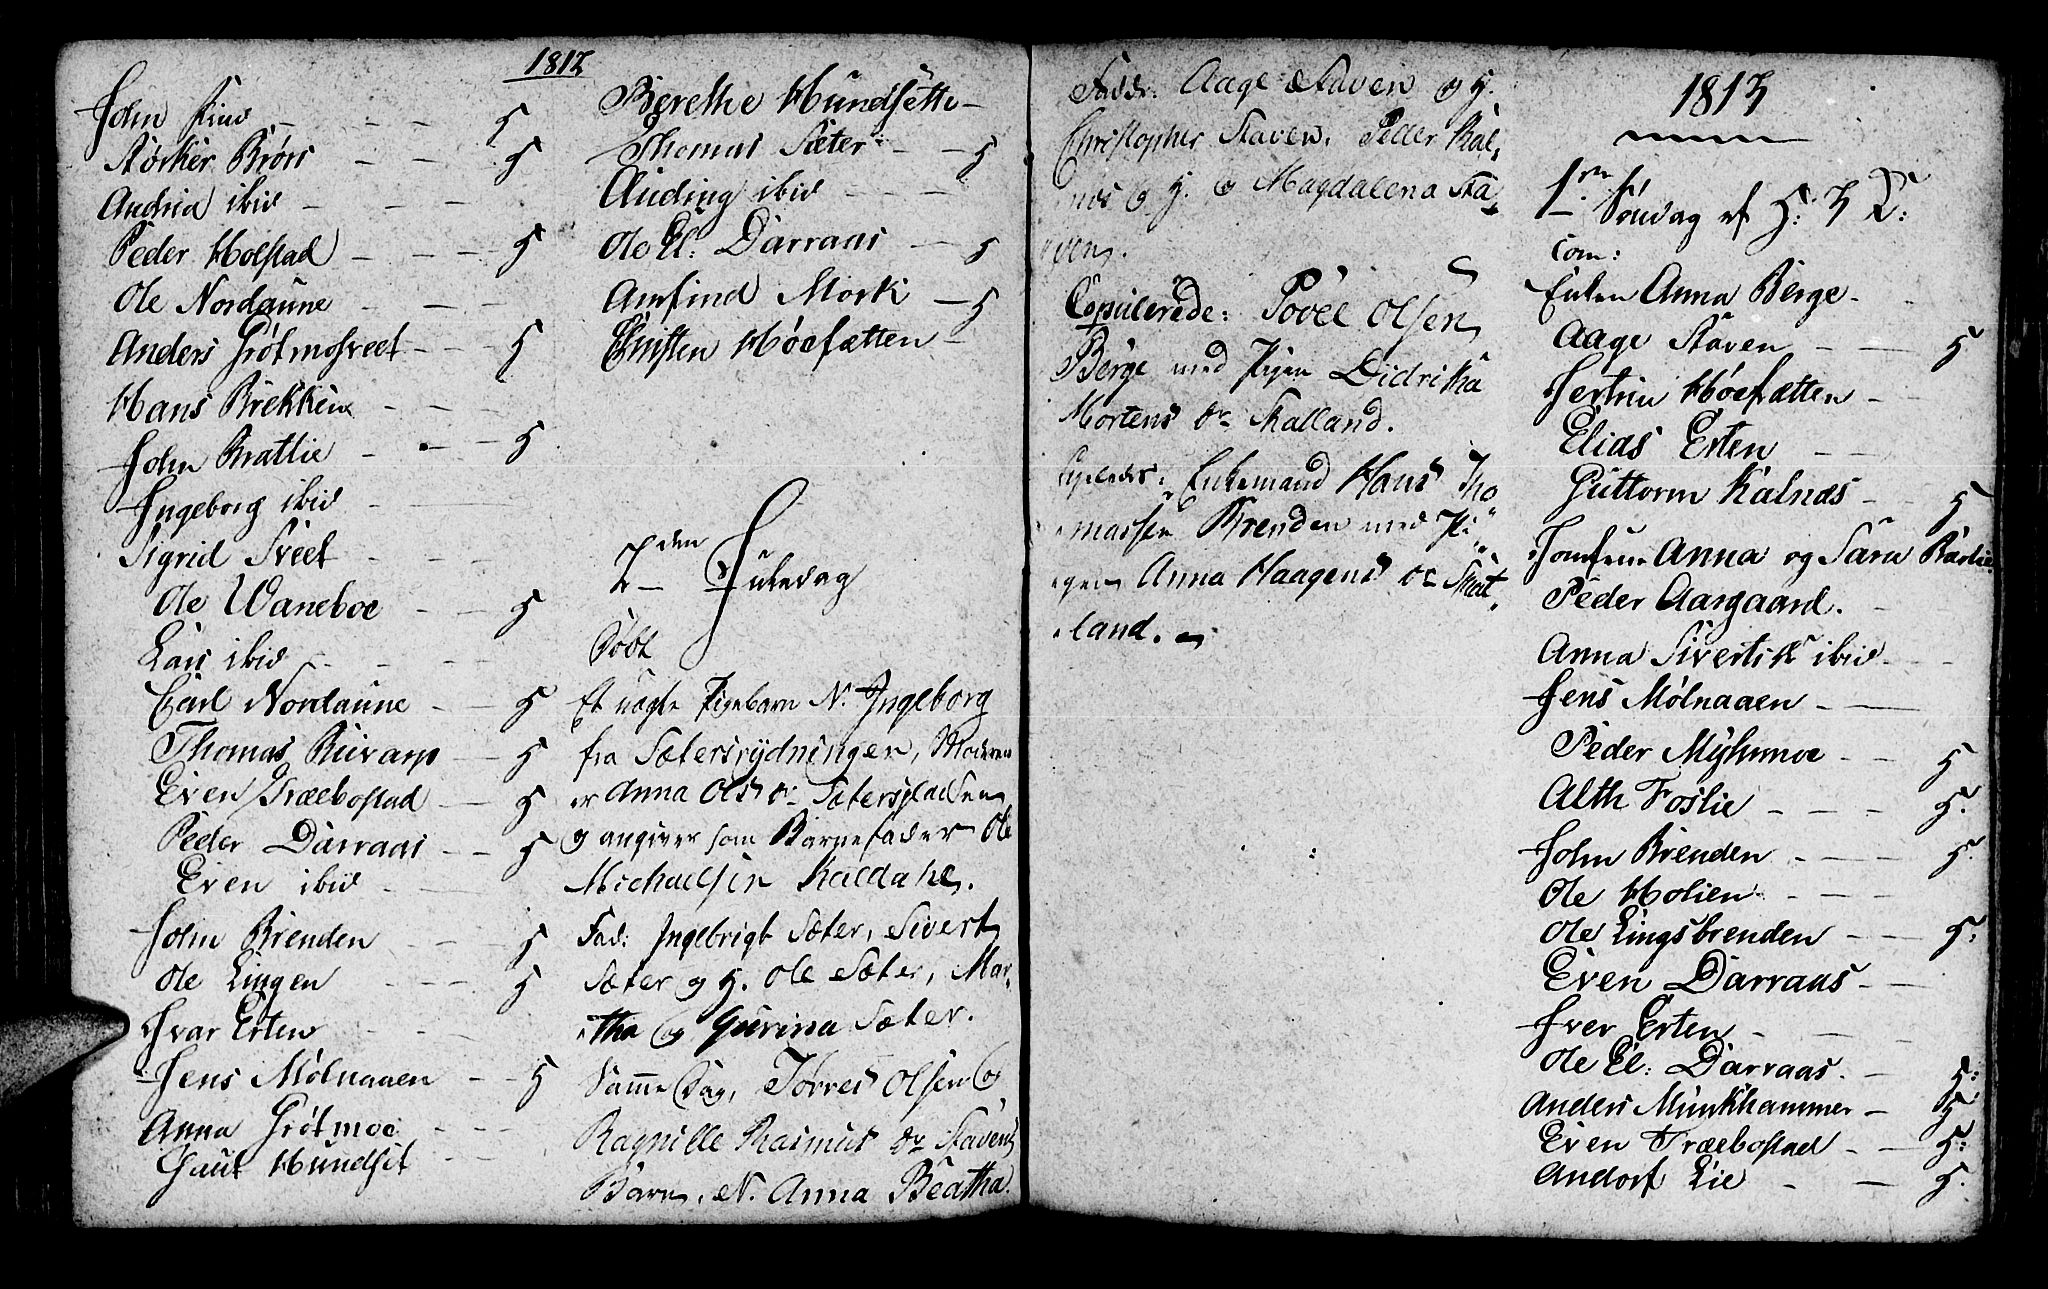 1812
John Lien - - - 5
Størker Brørs - - - 5
Andrea ibid - - -
Peder Holstad - - - 5
Ole Nordaune - - -
Anders Grøtmosveet - - - 5
Hans Brekken - -
John Bratlie - - - 5
Ingeborg ibid - - -
Sigrid Sveet - - -
Ole Waneboe - - 5
Lars ibid - - -
Carl Nordaune - - 5
Thomas Ruvarp - - 5
Even Træebostad - - 5
Peder Darraas - - 5
Even ibid - - -
John Brenden - - - 5
Ole Lingen - - - 5
Ivar Erten - -
Jens Mølnaaen - - 5
Anna Grøtmoe - - -
Gaut Hundset
Berethe Hundsette -
Thomas Sæter - - 5
Auding ibid - - -
Ole El: Darraas - 5
Amfind Mork - 5
Christen Høefætten -
2den Juledag
Døbt
Et uægte Pigebarn N. Ingeborg
fra Sætersrydningen, Moderen
er Anna Ols dr Sæterspladsen
og angiver som Barnefader Ole
Michaelsen Kaldahl.
Fad: Ingebrigt Sæter, Sivert
Sæter og H. Ole Sæter, Mar-
tha og Gurina Sæter.
Samme Dag, Tørres Olsen og
Ragnille Rasmus dr Stavens
Barn, N. Anna Beatha.
Faddr: Aage Staven og H.
Christopher Staven, Peder Kal-
næs og H. og Magdalena Sta-
ven.
Copulerede: Povel Olsen
Berge med Pigen Didrikka
Mortens dr Skalland.
Enkemand Hans Tho
massen Brenden med Pi
gen Anna Haagens dr Skal
land.
1813
1ste Søndag ef H: 3 K:
Com:
Enken Anna Berge - -
Aage Staven - - 5
Jertrin Høefætten - -
Elias Erten - -
Guttorm Kalnæs - - 5
Jomfrue Anna og Sara Barlie
Peder Aasgaard. -
Anna Sivertsk ibid - -
Jens Mølnaaen - -
Peder Myhrmoe - - 5
Alth Foslie - - - 5.
John Brenden - - - 5.
Ole Holien - - -
Ole Lingsbrenden - - 5:
Even Darraas - -
Iver Erten - - -
Ole El: Darraas. - 5:
Anders Munkhammer - 5
Even Træebostad - - 5:
Andorf Lie - - 5.